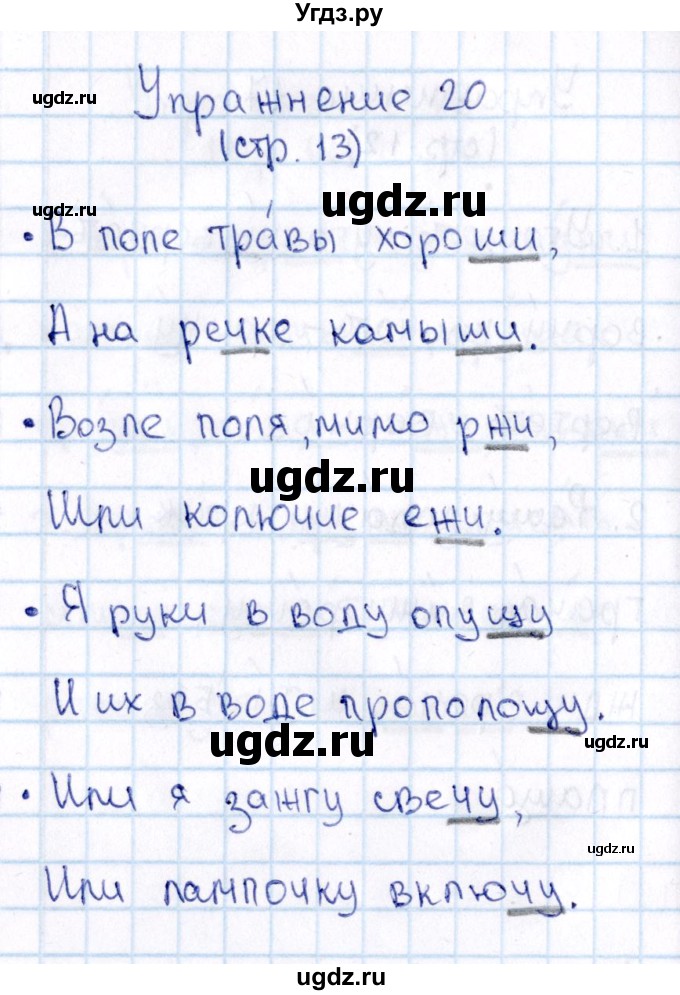 Угдз.ру
ugdz.ru
Упражнение 20
(стр. 13)
ugdz.ru
ugdz.ru
• В поле тра́вы хороши,
А на речке камыши.
ugdz.ru
• Возле поля, мимо ржи,
ugdz.ru
Шли колючие ежи.
• Я руки в воду опущу
И их в воде прополощу.
ugdz.ru
ugdz.ru
• Или я зажгу свечу,
ugdz.ru
Или лампочку включу.
ugdz.ru